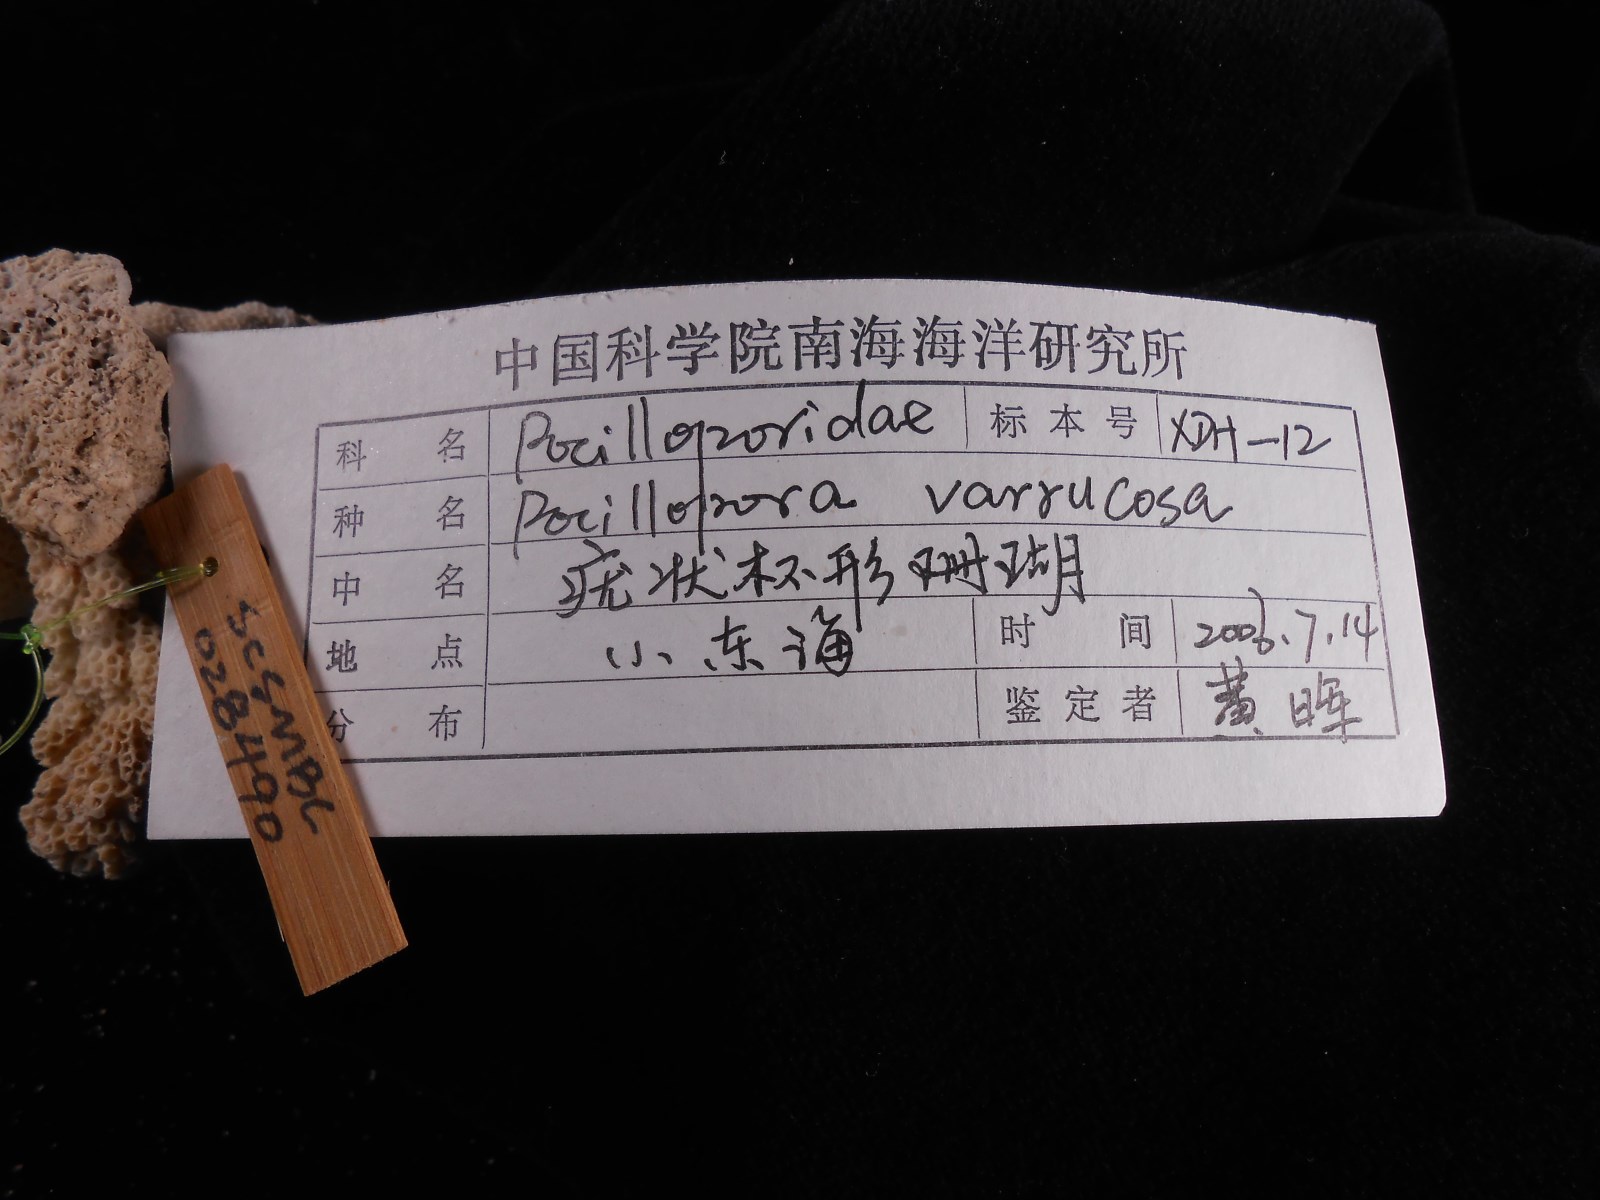 中国科学院南海海洋研究所
科名 Pocilloporidae 标本号 XDH-12
种名 Pocillopora varrucosa
中名 疣状杯形珊瑚
地点 小东海 时间 2006.7.14
分布 鉴定者 黄晖
SCSMBC
028490